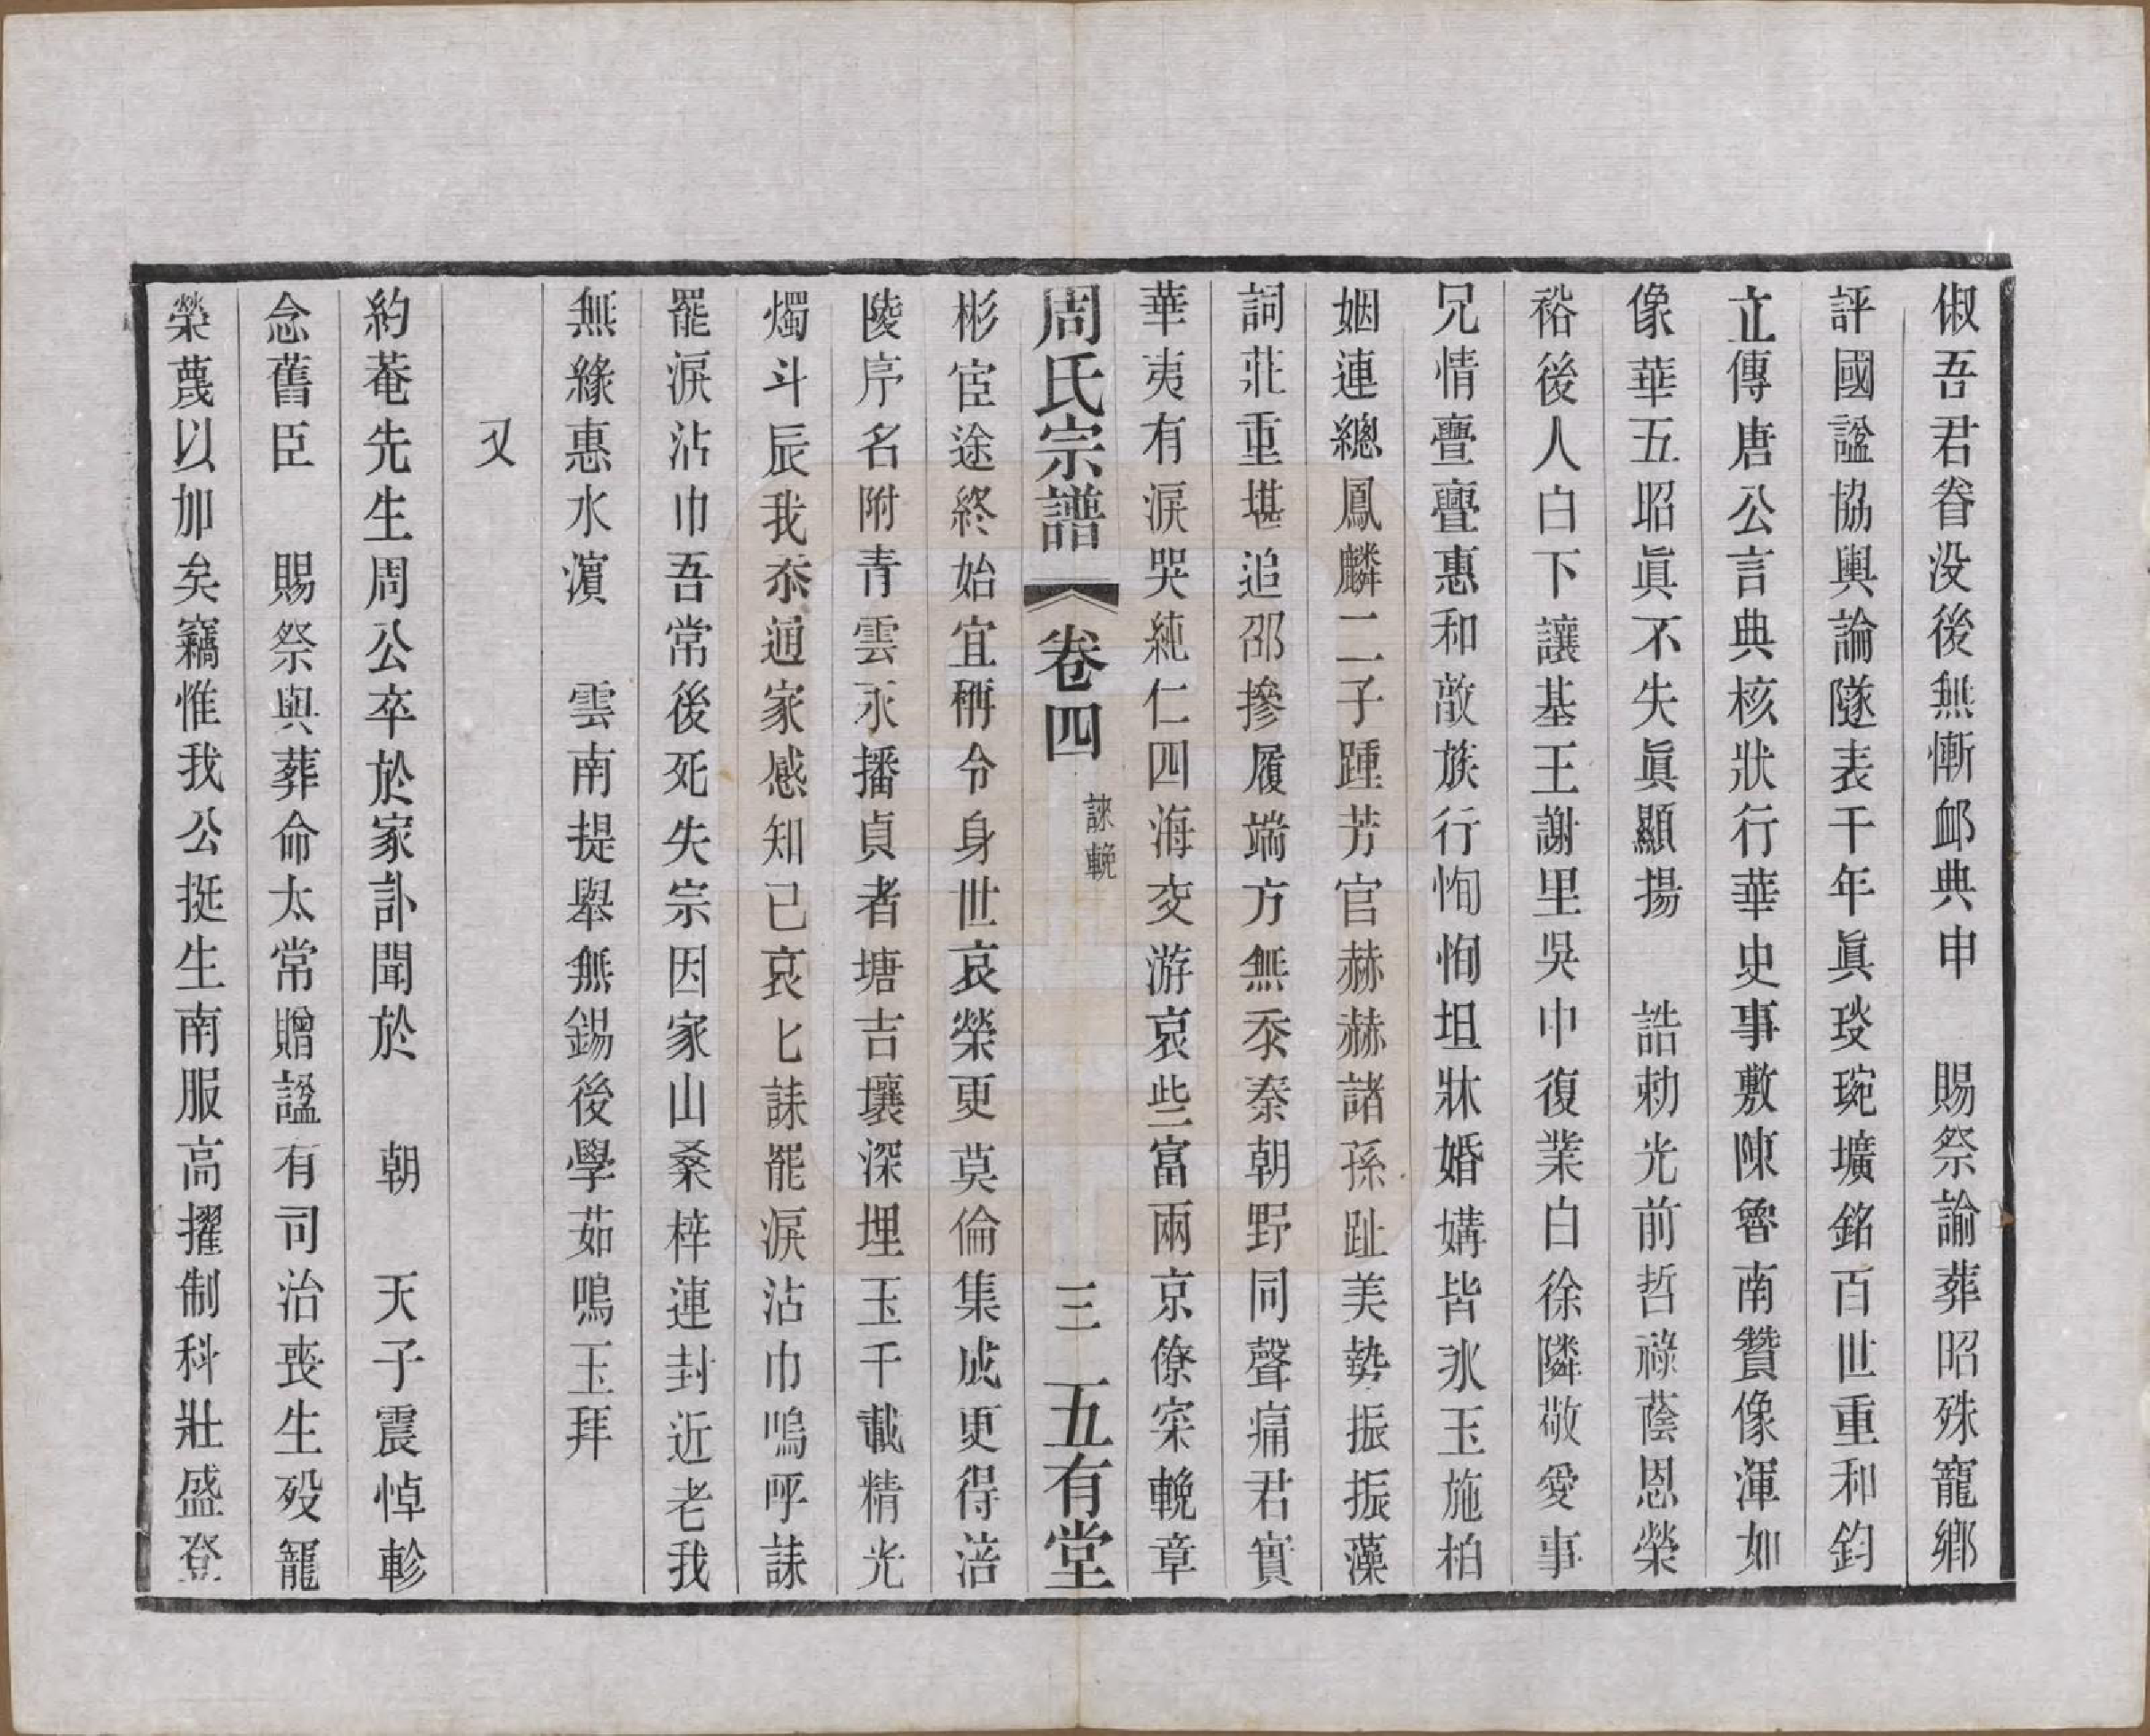 俶吾君眷没後無慚卹典申　賜祭諭葬昭殊寵鄉
評國謚協輿論隧表千年眞琰琬壙銘百世重和鈞
立傳唐公言典核狀行華史事敷陳魯南贊像渾如
像華五昭眞不失眞顯揚　誥勅光前哲祿蔭恩榮
裕後人白下讓基王謝里吳中復業白徐隣敬愛事
兄情亹亹惠和敵族行恂恂坦牀婚媾皆氷玉施柏
姻連總鳳麟二子踵芳官赫赫諸孫趾美勢振振藻
詞莊重堪追邵摻履端方無忝秦朝野同聲痛君實
華夷有淚哭純仁四海交游哀些富兩京僚寀輓章
周氏宗譜　卷四　誄輓　三　五有堂
彬宦途終始宜稱令身世哀榮更莫倫集成更得涪
陵序名附青雲永播貞者塘吉壤深埋玉千載精光
燭斗辰我忝通家感知己哀匕誄罷淚沾巾嗚呼誄
罷淚沾巾吾常後死失宗因家山桑梓連封近老我
無緣惠水濵　雲南提舉無錫後學茹鳴玉拜
又
約菴先生周公卒於家訃聞於　朝　天子震悼軫
念舊臣　賜祭與葬命太常贈謚有司治喪生殁寵
榮蔑以加矣竊惟我公挺生南服高擢制科壯盛登